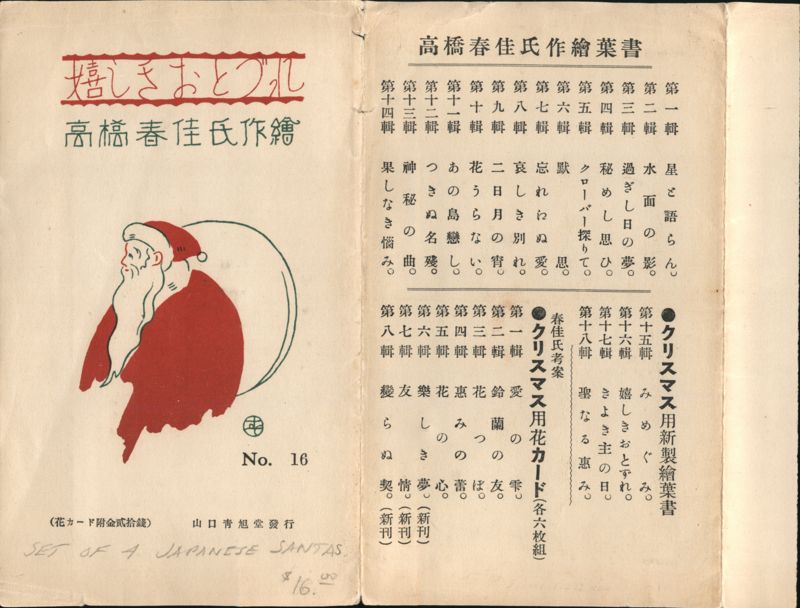 嬉しきおとづれ
高橋春佳氏作繪
No. 16
(花カード附金貳拾錢)
山口青旭堂發行
SET OF 4 JAPANESE SANTAS.
$16.00
高橋春佳氏作繪葉書
第一輯 星と語らん。
第二輯 水面の影。
第三輯 過ぎし日の夢。
第四輯 秘めし思ひ。
第五輯 クローバー探りて。
第六輯 默思。
第七輯 忘れわぬ愛。
第八輯 哀しき別れ。
第九輯 二日月の宵。
第十輯 花うらない。
第十一輯 あの島戀し。
第十二輯 つきぬ名殘。
第十三輯 神秘の曲。
第十四輯 果しなき惱み。
●クリスマス用新製繪葉書
第十五輯 みめぐみ。
第十六輯 嬉しきおとずれ。
第十七輯 きよき主の日。
第十八輯 聖なる惠み。
春佳氏考案
●クリスマス用花カード(各六枚組)
第一輯 愛の雫。
第二輯 鈴蘭の友。
第三輯 花つぼ。
第四輯 惠みの蕾。
第五輯 花の心。
第六輯 樂しき夢。(新刊)
第七輯 友情。(新刊)
第八輯 變らぬ契。(新刊)